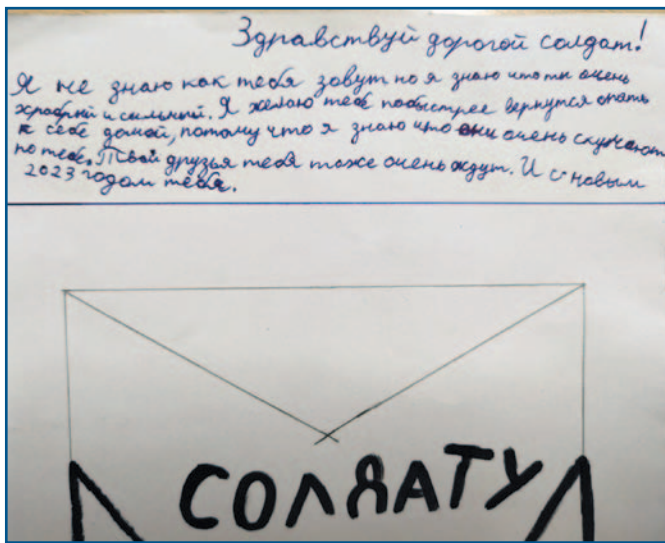 Здравствуй дорогой солдат!
Я не знаю как тебя зовут но я знаю что ти очень
храбрий и сильний. Я желаю тебе побыстрее вернутся опять
к себе домой, потому что я знаю что они очень скучают
по тебе. Твой друзья тебя тоже очень ждут. И с новым
2023 годом тебя.
СОЛДАТУ